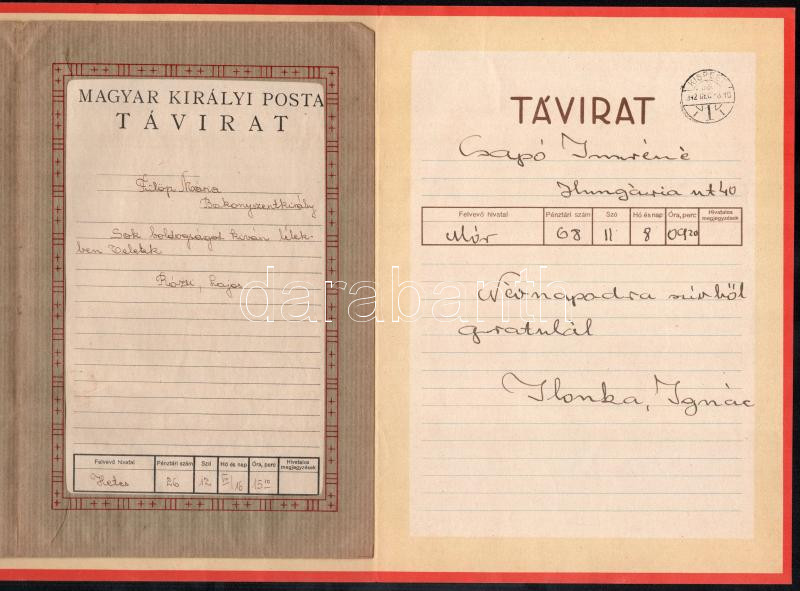 MAGYAR KIRÁLYI POSTA
TÁVIRAT
Fülöp Mária
Bakonyszentkirály
Sok boldogságot kíván lélek-
ben Veletek
Rózsi, Lajos
Felvevő hivatal Pénztári szám Szó Hó és nap Óra, perc Hivatalos megjegyzések
Hetes 26 12 16 15 10
TÁVIRAT
Csapó Imréné
Hungária út 40
Felvevő hivatal Pénztári szám Szó Hó és nap Óra, perc Hivatalos megjegyzések
Mór 68 11 8 09 20
Névnapodra szívből
gratulál
Ilonka, Ignác
KISPEST
darabanth